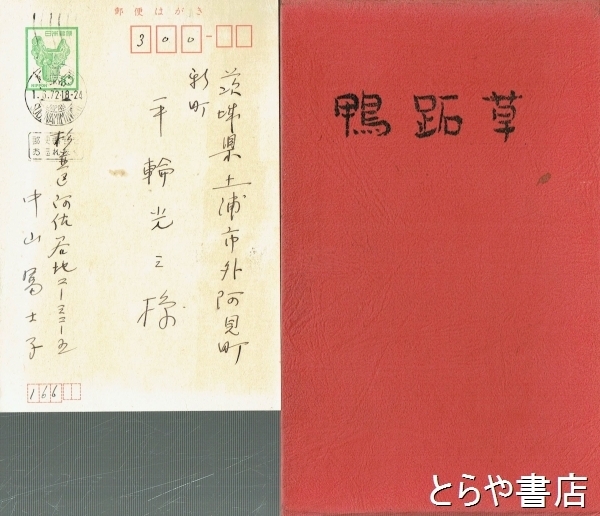 郵便はがき
300-
日本郵便
NIPPON
茨城県土浦市外阿見町
新町
平輪光三様
杉並区阿佐谷北二ー三三ー五
中山冨士子
166
鴨跖草
とらや書店